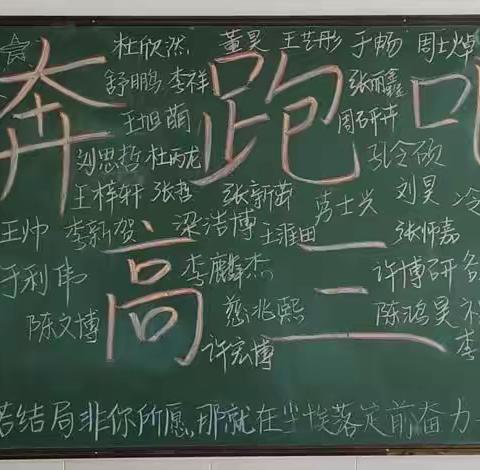 奔跑吧
高三
杜欣然 董昊 王艺彤 于畅 周士焯
舒鹏 李祥 张丽鑫
王旭萌 周研卉
刘思哲 杜丙龙 孔令硕
王梓轩 张哲 张新蕾 刘昊 冷
王帅 李新贺 梁洁博 王淮田 士兴 张师嘉
于利伟 李麟杰 许博研
陈文博 慈兆熙 陈鸿昊
许宏博 李
若结局非你所愿,那就在尘埃落定前奋力一